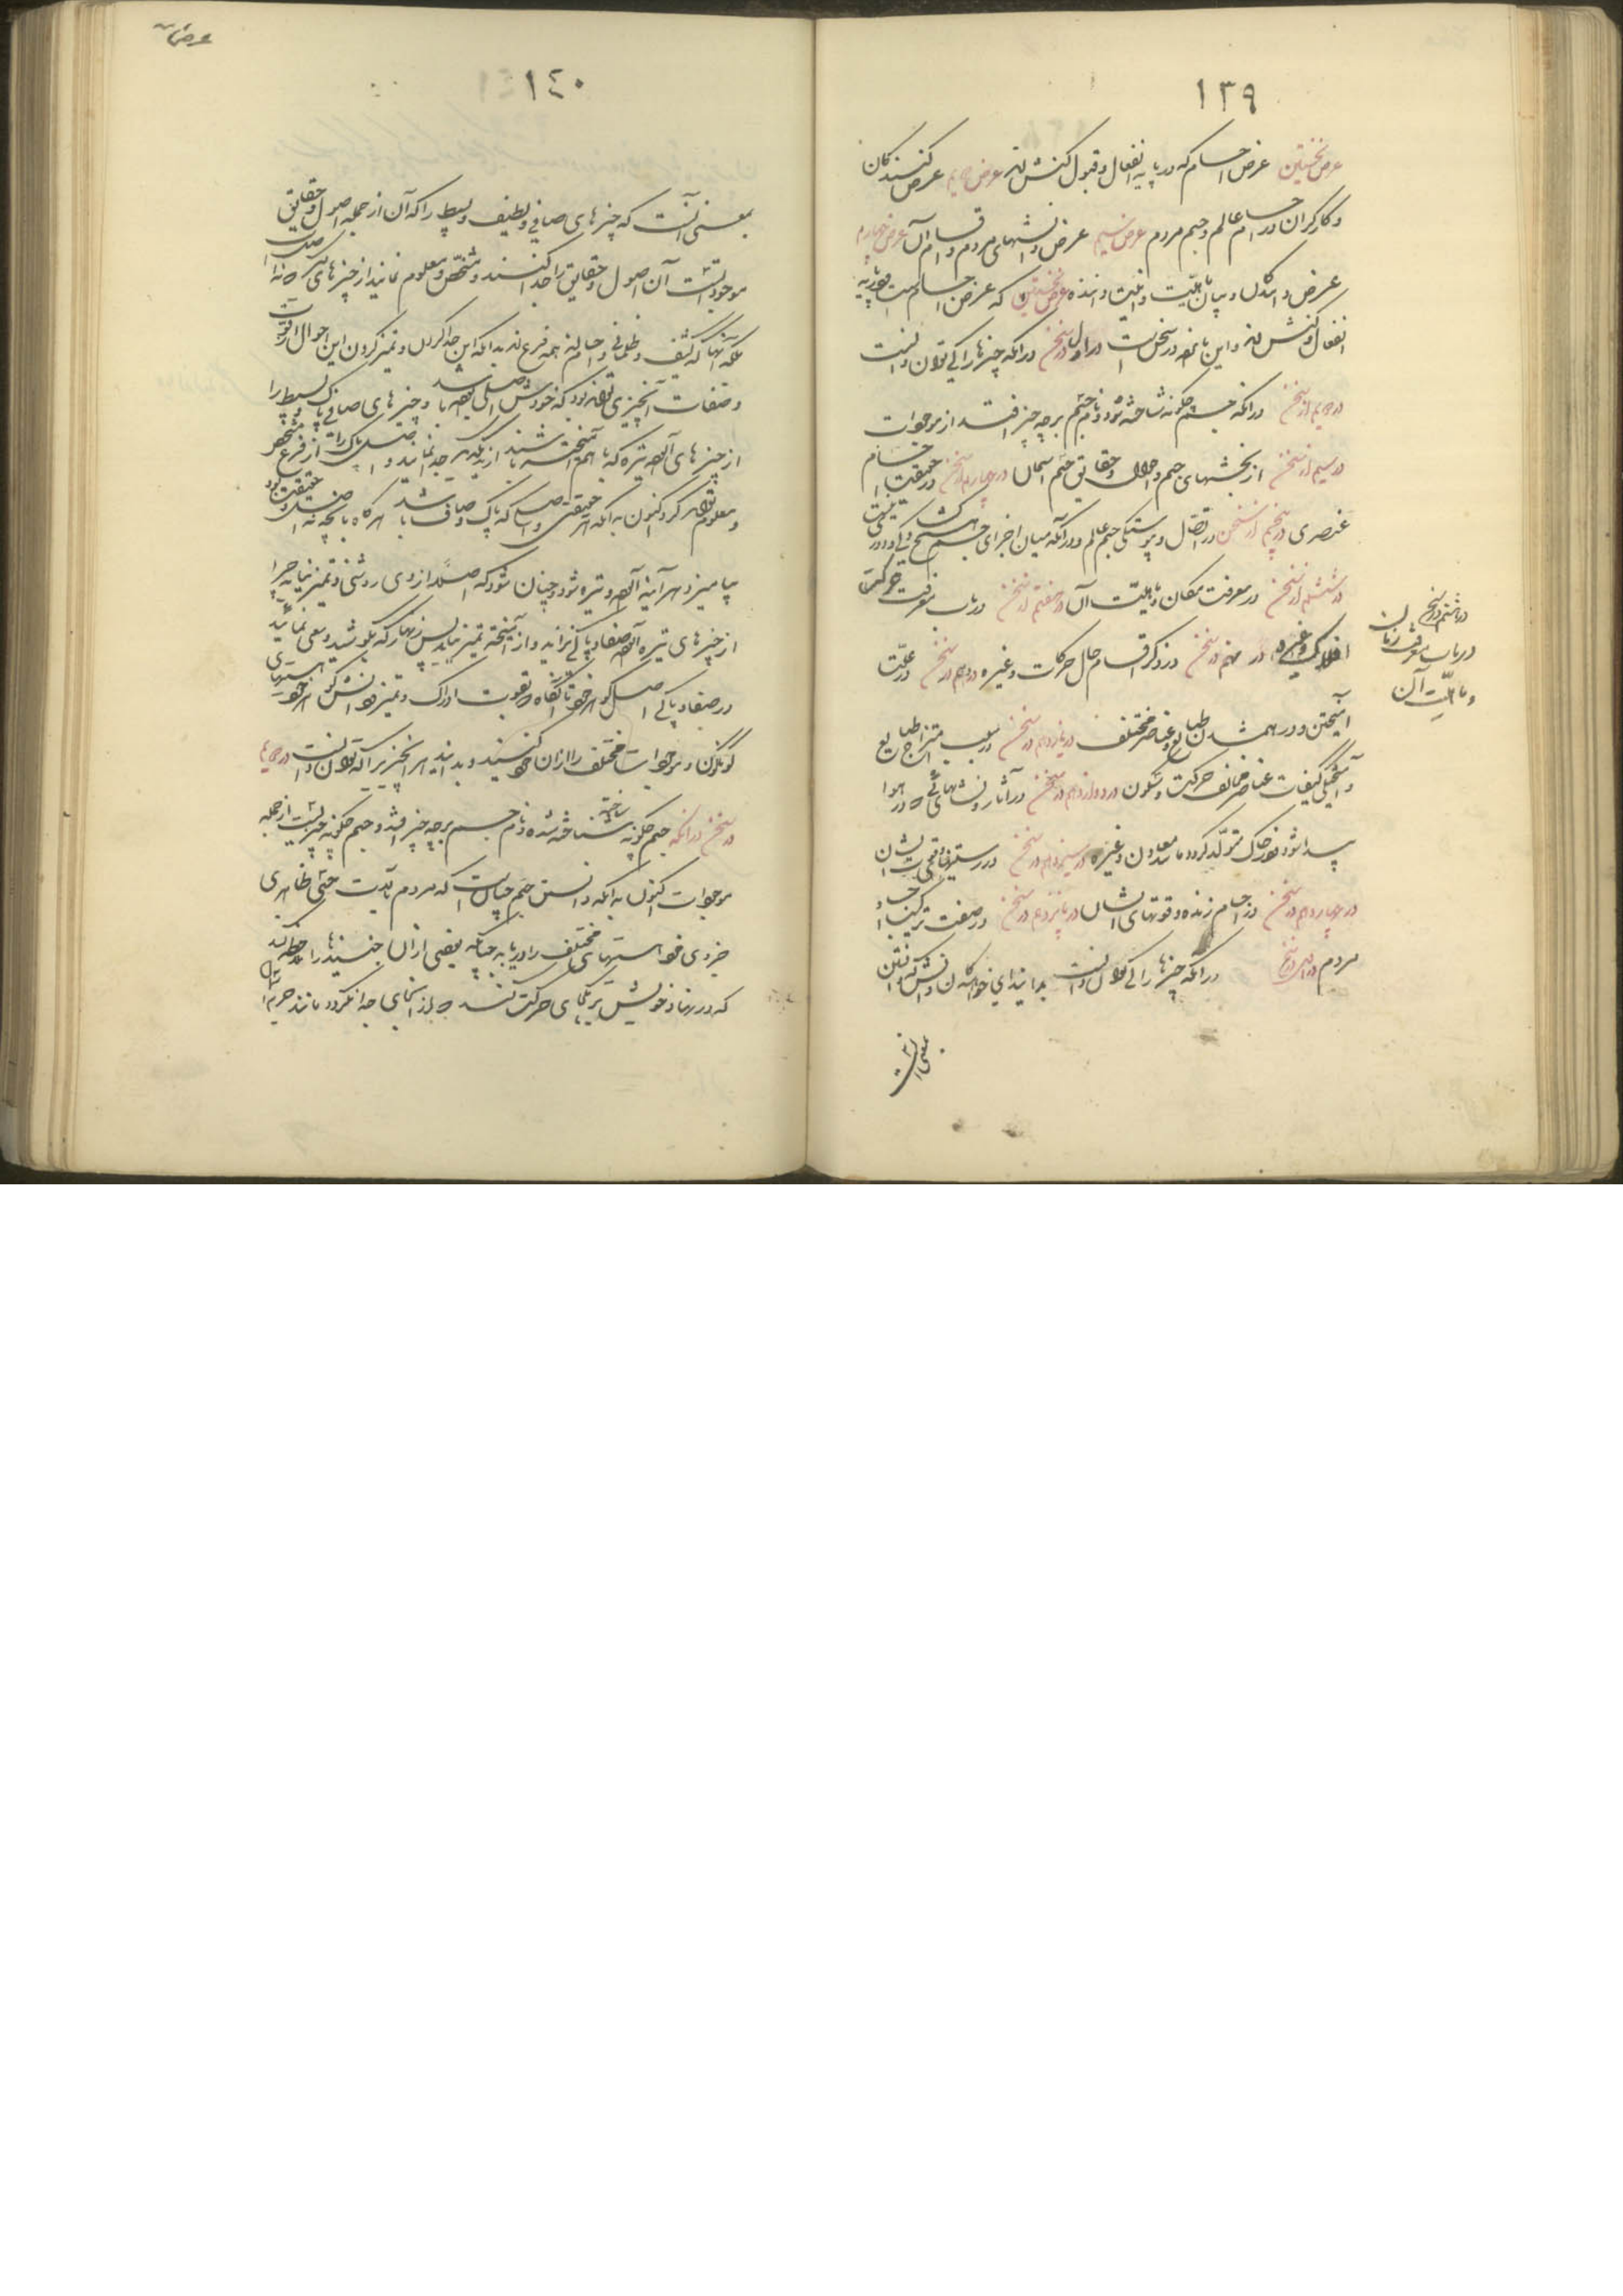 ١٣٩
عرض نخستین عرض اجسام که در پایه انفعال و قبول کنش‌اند عرض دویم عرض کنندگان
و کارگران در اجسام عالم و جسم مردم عرض سیم عرض دانشهای مردم و اقسام آن عرض چهارم
عرض دانندگان و بیان ماهیت و انیت داننده عرض نخستین که عرض اجسام است در پایه
انفعال و کنش‌اند و این پانزده در سخن است در اول در سخن در آنکه چیزها را کی توان دانست
در دویم از سخن در آنکه جسم چگونه شناخته شود و نام جسم بر چه چیز افتد از موجودات
در سیم از سخن از بخشهای جسم و احوال و حقایق جسم آسمان در چهارم در سخن در حقیقت اجسام
عنصری در پنجم از سخن در اتصال و پیوستگی جسم عالم و در آنکه میان اجزای جسم هیچ گشادگی و دوری نیست
در ششم از سخن در معرفت مکان و ماهیت آن در هفتم در سخن در باب معرفت حرکت
در هشتم در سخن
در باب معرفت زمان
و ماهیت آن
افلاک و غیره در نهم در سخن در ذکر اقسام حال حرکات و غیره در دهم در سخن در علت
آمیختن و در هم شدن طبایع و عناصر مختلف در یازدهم در سخن در سبب امتزاج طبایع
و آمیختگی کیفیات عناصر مخالف حرکت و سکون در دوازدهم در سخن در آثار و نشانهائی که در هوا
پیدا شود و در خاک متولد گردد مانند معادن و غیره در سیزدهم در سخن در رستنیها و قوتهای ایشان
در چهاردهم در سخن در اجسام زنده و قوتهای ایشان در پانزدهم در سخن در صفت ترکیب اجساد
مردم در اول در سخن در آنکه چیزها را کی توان دانست بدانید ای خواهندگان دانش که دانستن
بمعنی آنست
عرض
١٤٠
بمعنی آنست که چیزهای صافی و لطیف و بسیط را که آن از جمله اصول و حقایق
موجوداتست آن اصول و حقایق را جدا کنند و مشخص و معلوم نمایند از چیزهای که نه اصل‌اند
بلکه آنها کثیف و ظلمانی و اجسام‌اند همه فرع‌اند بدانکه این جدا کردن و تمیز کردن این احوال و قوت
و صفات آنچیزی تواند بود که خودش اصلی باشد و چیزهای صافی پاک بسیط را
از چیزهای آلوده تیره که با هم آمیخته باشند از یکدیگر جدا نماید و اصل پاک را از فرع مشخص
و معلوم تواند کرد اکنون بدانکه هر حقیقتی و اصلی که پاک و صاف باشد هرگاه با آنچه نه اصل و حقیقت بود
بیامیزد هر آینه آلوده و تیره شود و چنان شود که اصلا از وی روشنی و تمیز نیاید چرا
از چیزهای تیره آلوده صفا و پاکی نزاید و از آمیخته تمیز نیاید پس زنهار که بکوشید و سعی نمائید
در صفا و پاکی اصل گوهر خود تا آنگاه بقوت ادراک و تمیز و دانش گوهر خود هستیهای
گوناگون و موجودات مختلف را از آن خود کنید و بدانید هر آنچیز را که توان دانست در دویم
در سخن در آنکه جسم چگونه شناخته شده و نام جسم بر چه چیز افتد و جسم چگونه چیزیست از جمله
موجودات اکنون بدانکه دانستن جسم چنانست که مردم بآلت حسی ظاهری
جزوی خود هستیهای مختلف را دریابد چنانکه بعضی از آن جنبنده‌ها را ملاحظه کند
که در نهاد خویش بر یکجای حرکت کنند و از آنجای جدا نگردد مانند